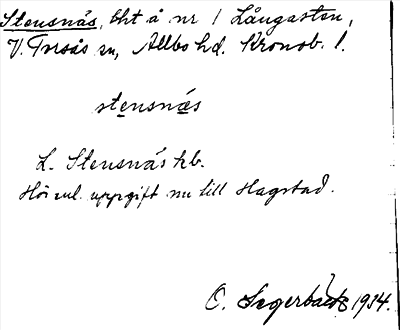 Stensnäs, lht å nr 1 Långasten,
V. Torsås sn, Allbo hd. Kronob. l.
stensnäs
L. Stensnäs hb.
Hör enl. uppgift nu till Hagstad.
O. Segerbäck 1934.